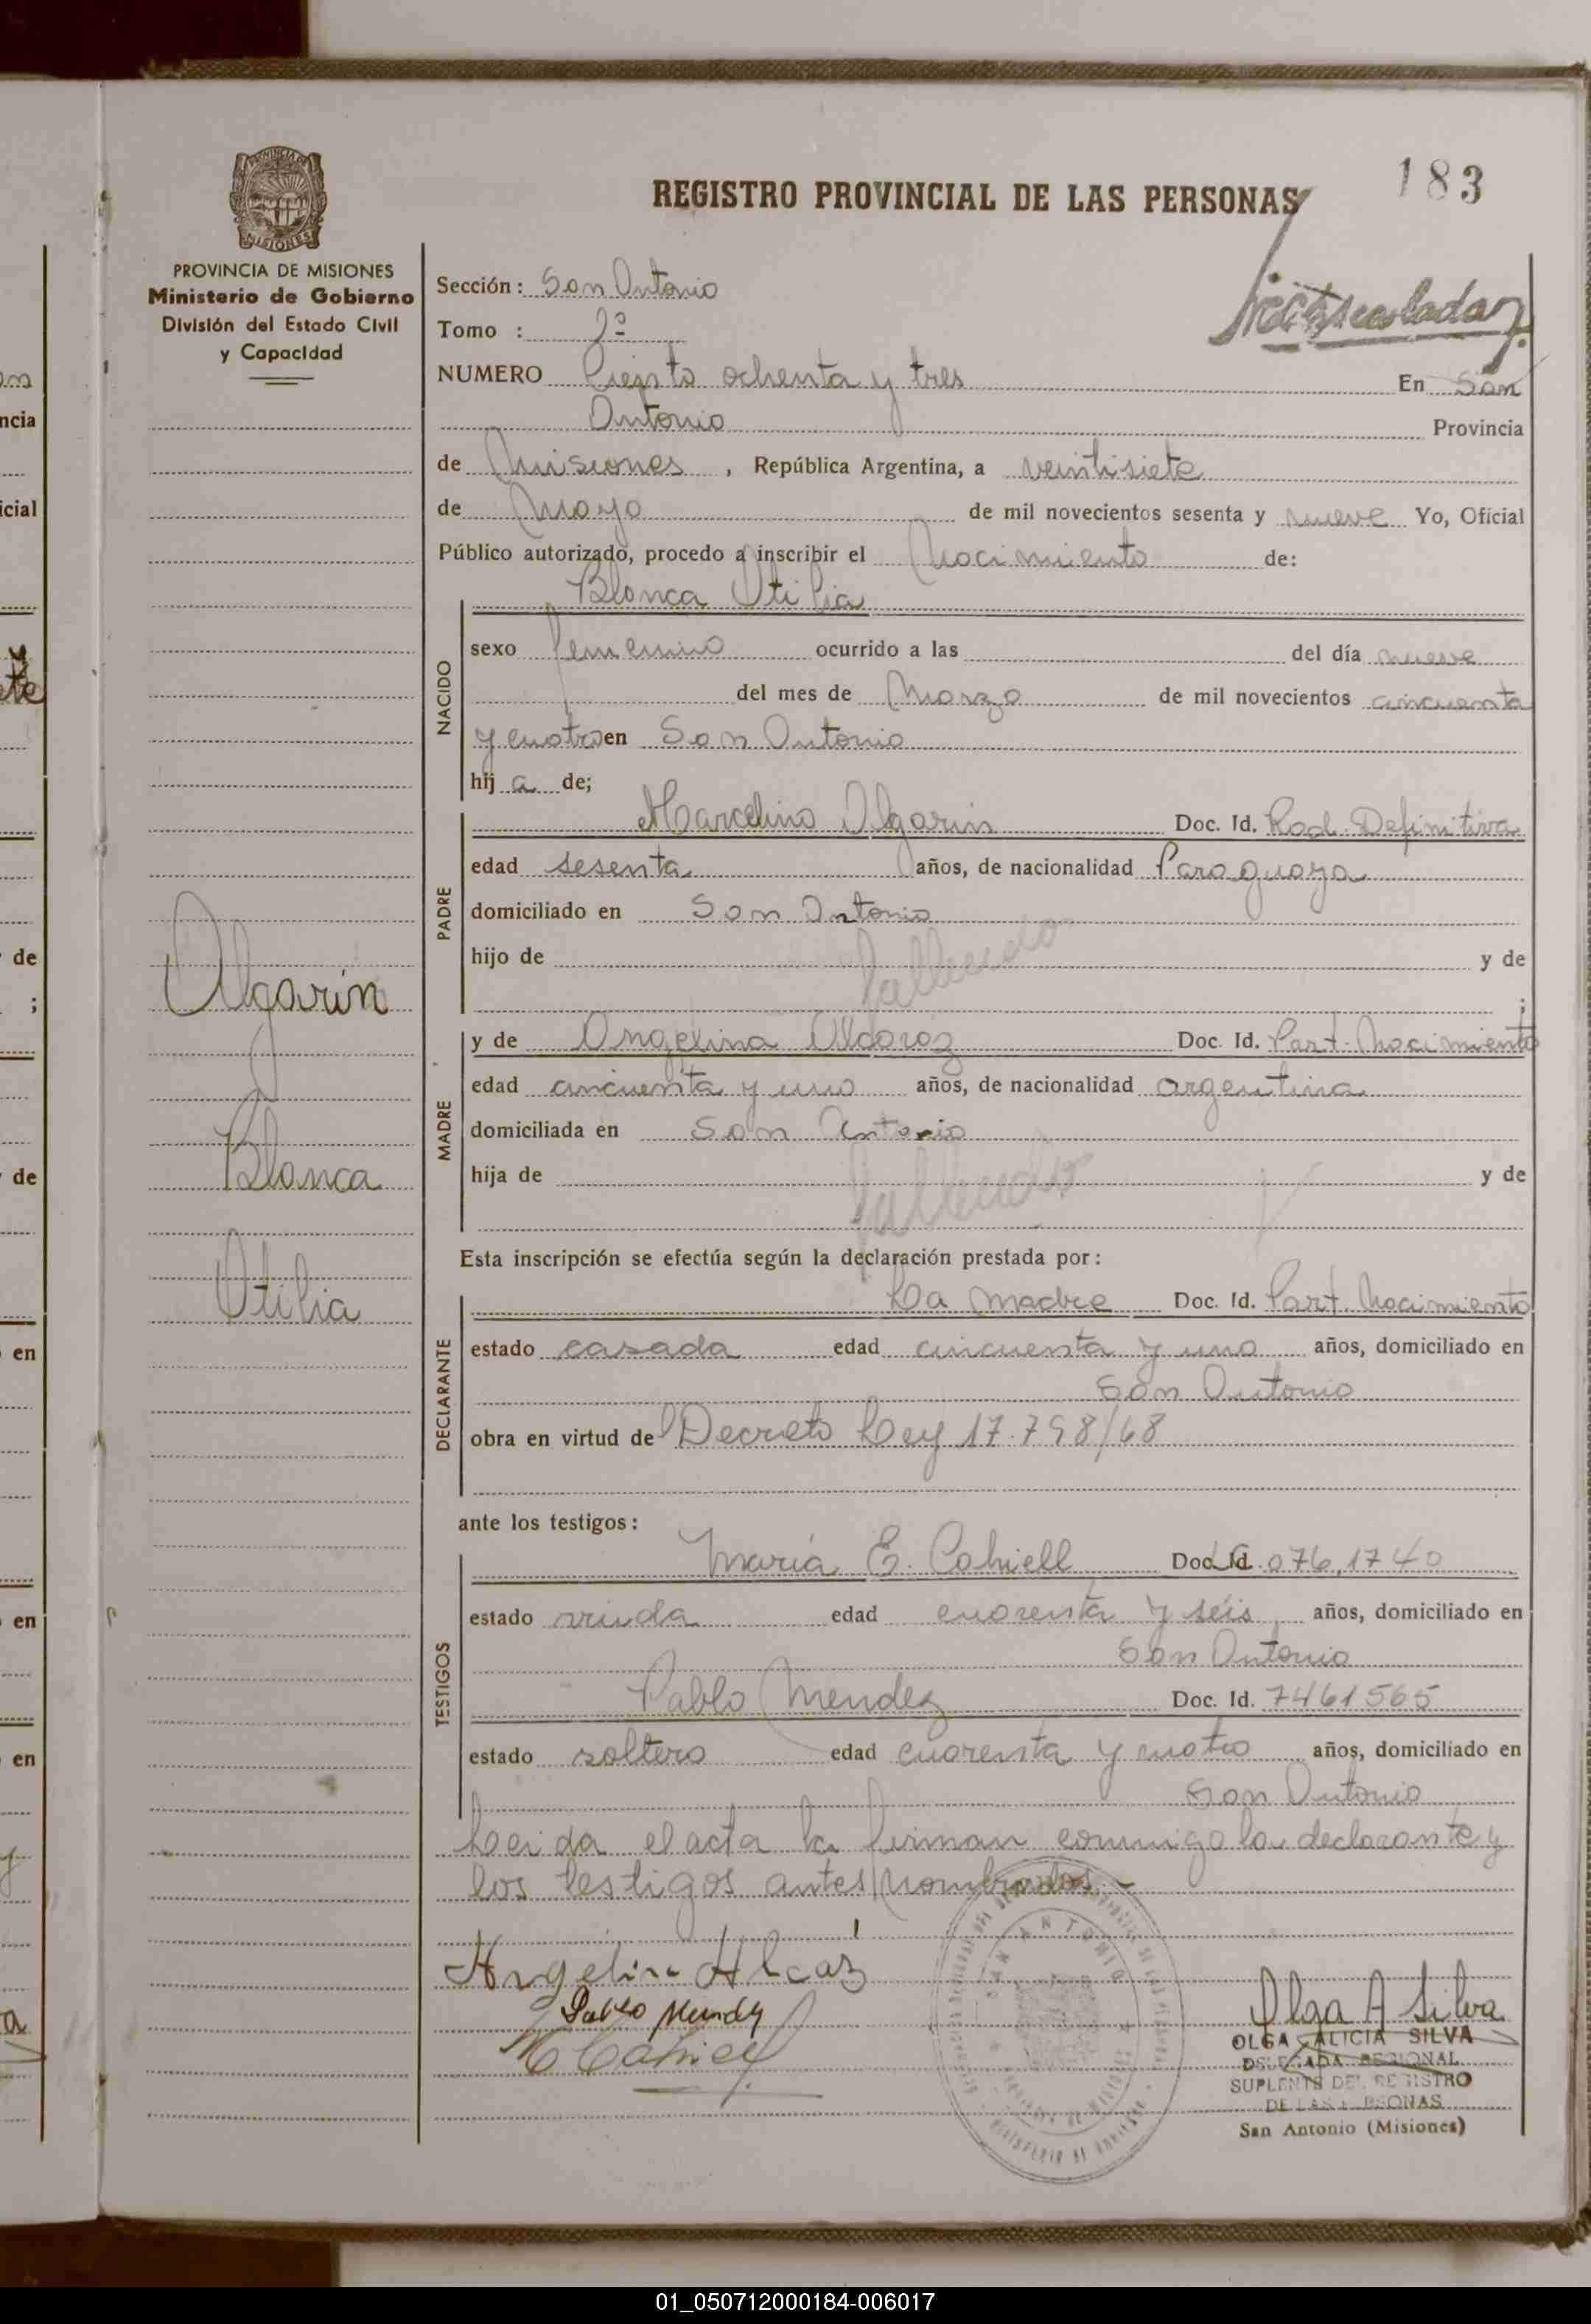 183
REGISTRO PROVINCIAL DE LAS PERSONAS
PROVINCIA DE MISIONES
Ministerio de Gobierno
División del Estado Civil
y Capacidad
Sección: San Antonio
Tomo : 2º
NUMERO Ciento ochenta y tres En San
Antonio Provincia
de Misiones, República Argentina, a veintisiete
de Mayo de mil novecientos sesenta y nueve Yo, Oficial
Público autorizado, procedo a inscribir el Nacimiento de:
Blanca Otilia
NACIDO
sexo femenino ocurrido a las del día nueve
del mes de Marzo de mil novecientos cincuenta
y cuatro en San Antonio
hij a de;
PADRE
Marcelino Algarin Doc. Id. Rad. Definitiva
edad sesenta años, de nacionalidad Paraguaya
domiciliado en San Antonio
hijo de y de
;
MADRE
y de Angelina Alcaraz Doc. Id. Part. Nacimiento
edad cincuenta y uno años, de nacionalidad argentina
domiciliada en San Antonio
hija de y de
Esta inscripción se efectúa según la declaración prestada por:
DECLARANTE
La madre Doc. Id. Part. Nacimiento
estado casada edad cincuenta y uno años, domiciliado en
San Antonio
obra en virtud de Decreto Ley 17.798/68
ante los testigos:
TESTIGOS
María E. Cohiell Doc. Id. 076,1740
estado viuda edad cuarenta y séis años, domiciliado en
San Antonio
Pablo Mendez Doc. Id. 7461565
estado soltero edad cuarenta y cuatro años, domiciliado en
San Antonio
Leida el acta la firman conmigo la declarante y
los testigos antes nombrados.-
Algarín
Blanca
Otilia
Pablo Mendez
SAN ANTONIO
Olga A Silva
OLGA ALICIA SILVA
DELEGADA REGIONAL
SUPLENTE DEL REGISTRO
DE LAS PERSONAS
San Antonio (Misiones)
ncia
icial
de
;
de
en
en
en
01_050712000184-006017